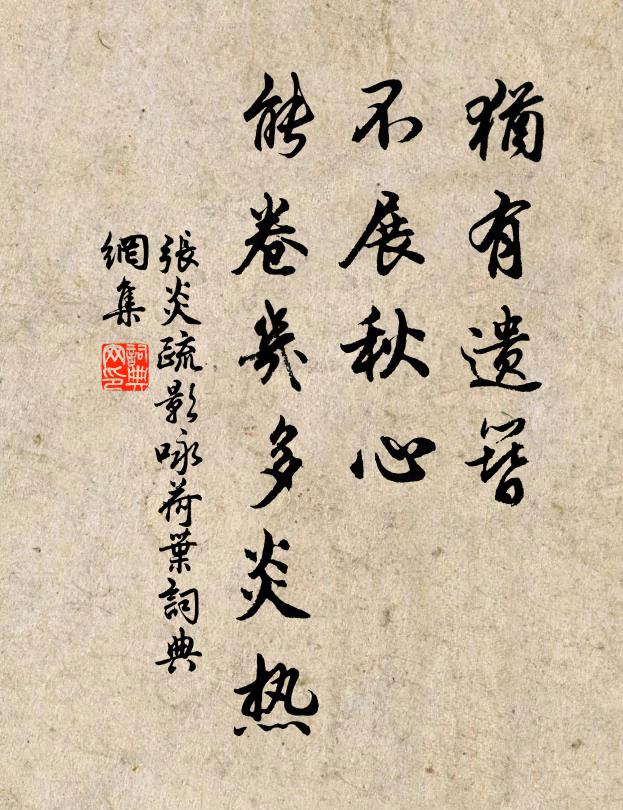 猶有遺簪
不展秋心
能卷幾多炎热
張炎疏影咏荷葉詞典
網集
詞典
网印